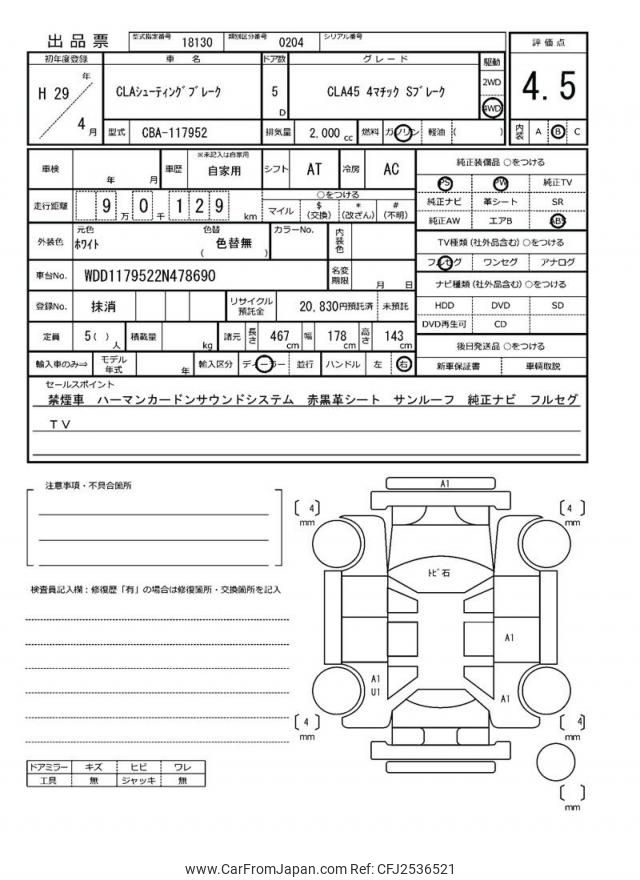 出品票 型式指定番号 18130 類別区分番号 0204 シリアル番号
初年度登録 車名 ドア数 グレード 駆動 評価点
H 29 年 4 月 CLAシューティングブレーク 5 D CLA45 4マチック Sブレーク 2WD 4WD 4.5
型式 CBA-117952 排気量 2,000 cc 燃料 ガソリン 軽油 ( ) 内装 A B C
車検 年 月 車歴 ※未記入は自家用 自家用 シフト AT 冷房 AC
純正装備品 ○をつける
PS PW 純正TV
純正ナビ 革シート SR
純正AW エアB ABS
走行距離 9 万 0 千 1 2 9 km
○をつける
マイル $ (交換) * (改ざん) # (不明)
外装色 元色 ホワイト 色替 色替無 ( ) カラーNo. 内装色
TV種類 (社外品含む) ○をつける
フルセグ ワンセグ アナログ
車台No. WDD1179522N478690 名変期限 月 日
ナビ種類 (社外品含む) ○をつける
HDD DVD SD
DVD再生可 CD
登録No. 抹消 リサイクル預託金 20,830円預託済 未預託
定員 5( ) 人 積載量 kg 諸元 長さ 467 cm 幅 178 cm 高さ 143 cm
後日発送品 ○をつける
新車保証書 車輌取説
輸入車のみ⇒ モデル年式 年 輸入区分 ディーラー 並行 ハンドル 左 右
セールスポイント
禁煙車 ハーマンカードンサウンドシステム 赤黒革シート サンルーフ 純正ナビ フルセグ
TV
注意事項・不具合箇所
検査員記入欄：修復歴「有」の場合は修復箇所・交換箇所を記入
A1
4 mm
4 mm
トビ石
A1
A1
U1
A1
4 mm
4 mm
mm
ドアミラー キズ ヒビ ワレ
工具 無 ジャッキ 無
www.CarFromJapan.com Ref: CFJ2536521